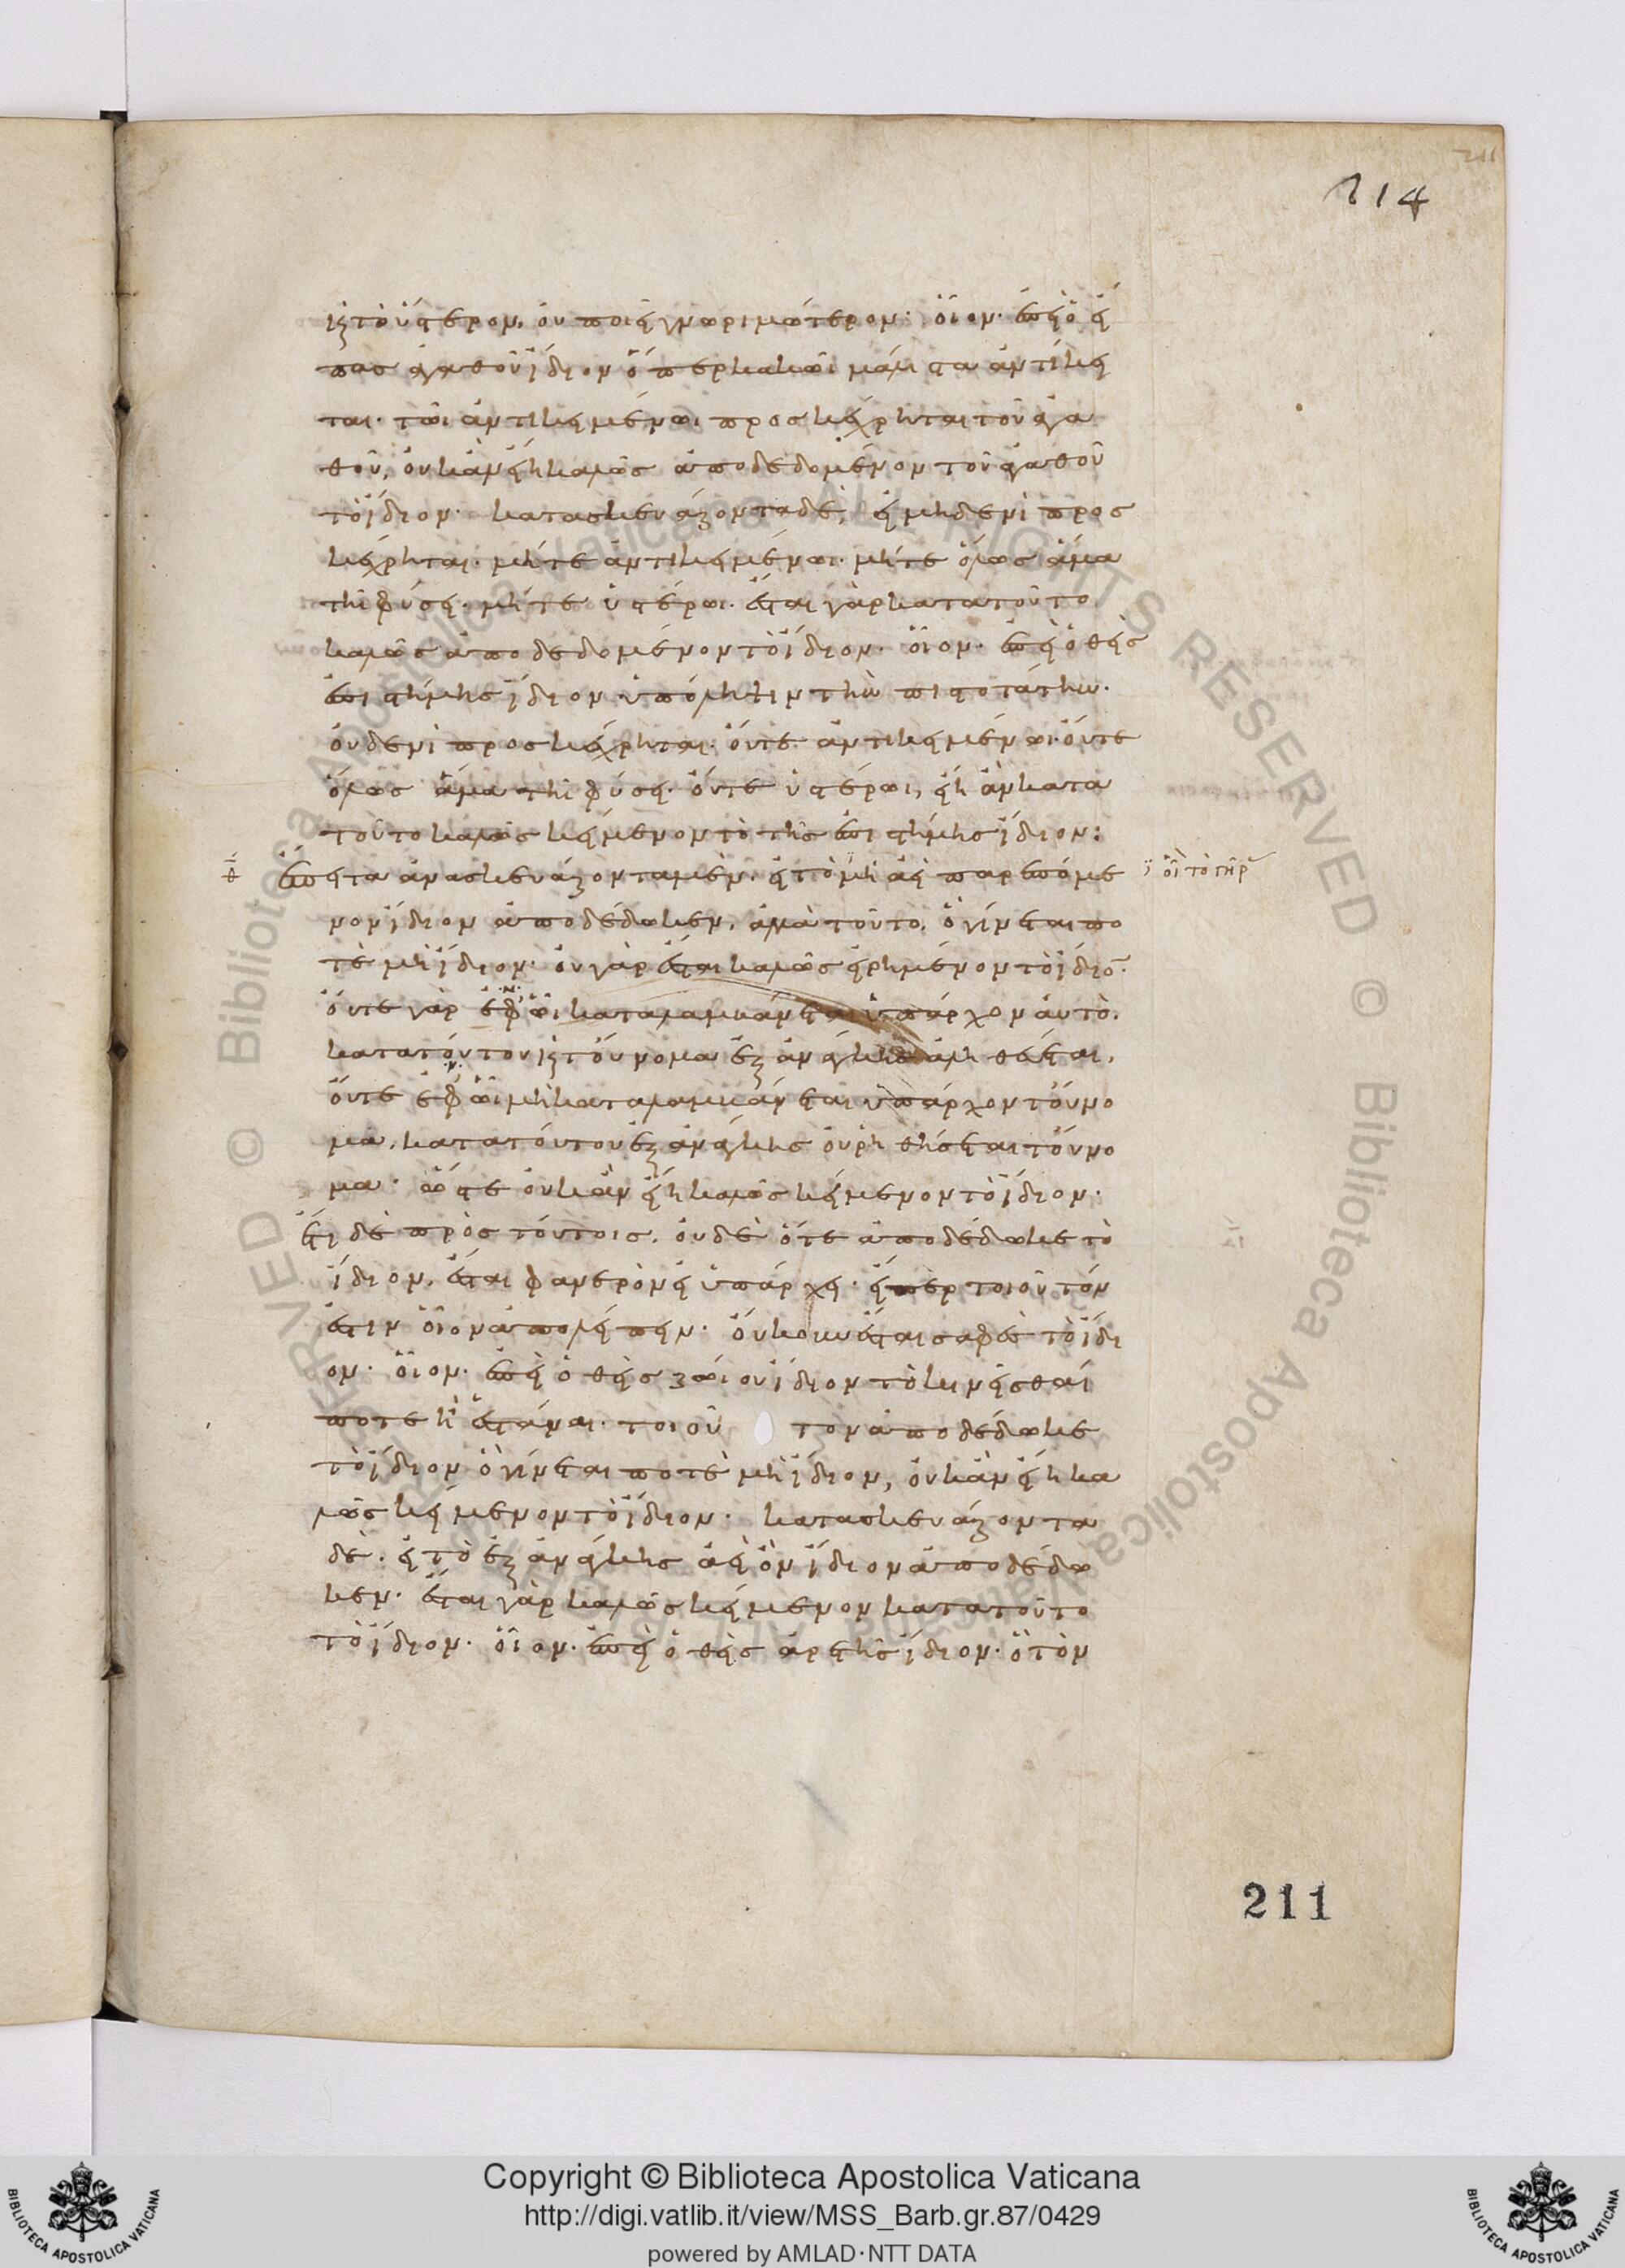 καὶ τὸ ὕστερον, οὐ ποιεῖ γνωριμώτερον· οἷον· ἐπεὶ ὁ εἴ
πας ἀγαθοῦ ἴδιον ὅπερ κακῶι μάλιστα ἀντίκει
ται· τῶι ἀντικειμένωι προσκέχρηται τοῦ ἀγα
θοῦ, οὐκ ἂν εἴη καλῶς ἀποδεδομένον τοῦ ἀγαθοῦ
τὸ ἴδιον· κατασκευάζοντα δὲ, εἰ μηδενὶ προσ
κέχρηται· μήτε ἀντικειμένωι· μήτε ὅλως ἅμα
τῆι φύσει· μήτε ὑστέρωι· ἔσται γὰρ κατὰ τοῦτο
καλῶς ἀποδεδομένον τὸ ἴδιον· οἷον· ἐπεὶ ὁ θεὶς
ἐπιστήμης ἴδιον ὑπόληψιν τὴν πιστοτάτην·
οὐδενὶ προσκέχρηται· οὔτε ἀντικειμένωι· οὔτε
ὅλως ἅμα τῆι φύσει· οὔτε ὑστέρωι, εἴη ἂν κατὰ
τοῦτο καλῶς κείμενον τὸ τῆς ἐπιστήμης ἴδιον:
ἔπειτα ἀνασκευάζοντα μὲν· εἰ τὸ μὴ ἀεὶ παρεπόμε
νον ἴδιον ἀποδέδωκεν, ἀλλὰ τοῦτο, ὃ γίνεται πο
τὲ μὴ ἴδιον· οὐ γὰρ ἔσται καλῶς εἰρημένον τὸ ἴδιον·
οὔτε γὰρ ἐφ' ὧι καταλαμβάνεται ὑπάρχον αὐτὸ,
κατὰ τούτου καὶ τοὔνομα ἐξ ἀνάγκης ἀληθεύεται,
οὔτε ἐφ' ὧι μὴ καταλαμβάνεται ὑπάρχον τοὔνο
μα, κατὰ τούτου ἐξ ἀνάγκης οὐ ῥηθήσεται τοὔνο
μα· ὥστε οὐκ ἂν εἴη καλῶς κείμενον τὸ ἴδιον·
ἔτι δὲ πρὸς τούτοις, οὐδὲ ὅτε ἀποδέδωκε τὸ
ἴδιον, ἔσται φανερὸν εἰ ὑπάρχει· εἴπερ τοιοῦτόν
ἐστιν οἷον ἀπολείπειν· οὔκουν ἔσται σαφὲς τὸ ἴδι
ον· οἷον· ἐπεὶ ὁ θεὶς ζώιου ἴδιον τὸ κινεῖσθαί
ποτε ἢ ἑστάναι· τοιοῦ τον ἀποδέδωκε
τὸ ἴδιον ὃ γίνεται ποτὲ μὴ ἴδιον, οὐκ ἂν εἴη κα
λῶς κείμενον τὸ ἴδιον· κατασκευάζοντα
δὲ· εἰ τὸ ἐξ ἀνάγκης ἀεὶ ὂν ἴδιον ἀποδέδω
κεν· ἔσται γὰρ καλῶς κείμενον κατὰ τοῦτο
τὸ ἴδιον· οἷον· ἐπεὶ ὁ θεὶς ἀρετῆς ἴδιον· ὃ τὸν
214
211
211
Copyright © Biblioteca Apostolica Vaticana
http://digi.vatlib.it/view/MSS_Barb.gr.87/0429
powered by AMLAD·NTT DATA
BIBLIOTECA APOSTOLICA VATICANA
BIBLIOTECA APOSTOLICA VATICANA